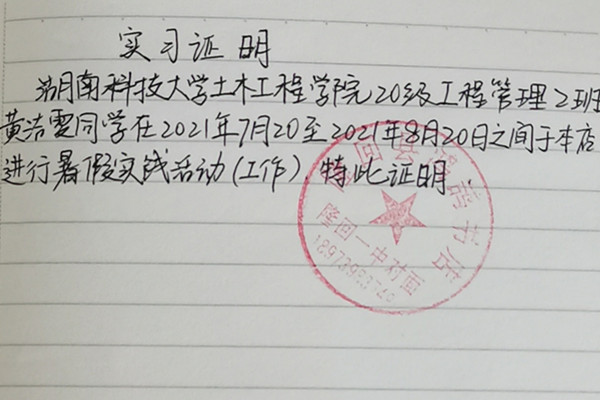 实习证明
湖南科技大学土木工程学院20级工程管理2班
黄洁雯同学在2021年7月20至2021年8月20日之间于本店
进行暑假实践活动(工作),特此证明.
隆回县 书店
隆回一中对面